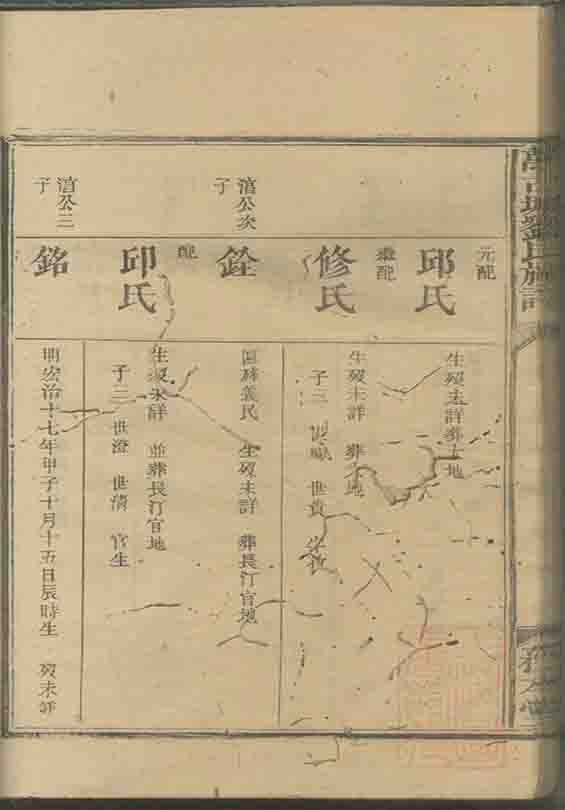 劉氏族譜
元配
邱氏
生歿未詳葬土地
繼配
修氏
生歿未詳 葬 地
子三 世 世貴
淯公次
子
銓
義民 生歿未詳 葬長汀官地
配
邱氏
生歿未詳 並葬長汀官地
子三 世澄 世清 官生
淯公三
子
銘
明宏治十七年甲子十月十五日辰時生 歿未詳